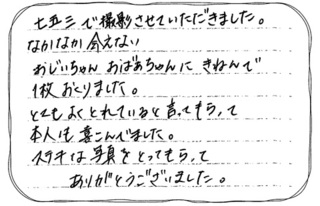 七五三で撮影させていただきました。
なかなか会えない
おじいちゃん おばあちゃんに きねんで
1枚おくりました。
とてもよくとれていると言ってもらって
本人も喜こんでました。
ステキな写真をとってもらって
ありがとうございました。